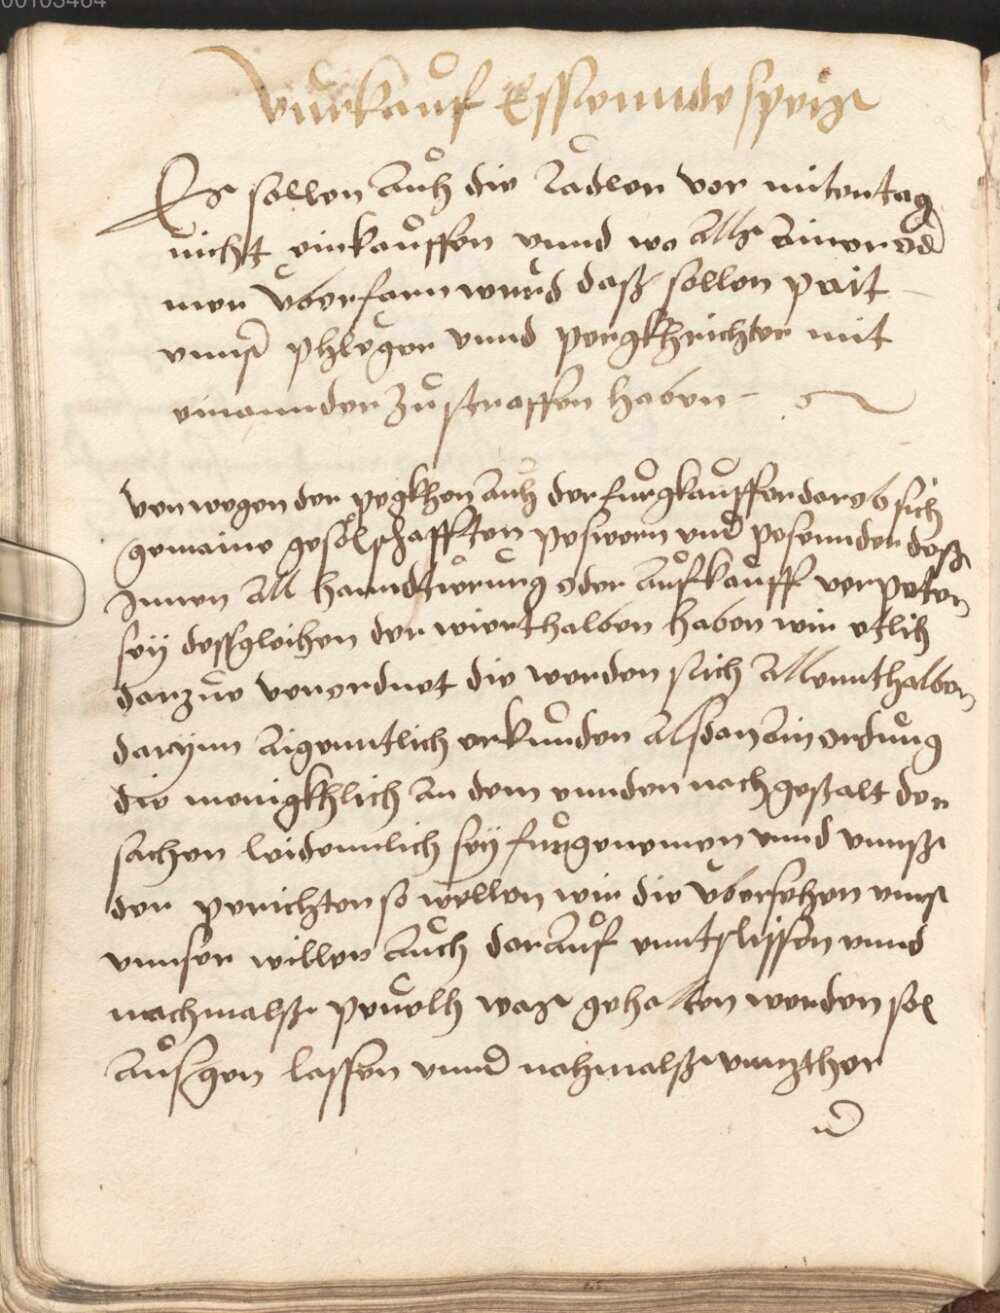 00103464
Vürkauf Essennde speiß
Es sollen auch die Ladler vor mitentag
nicht einkauffen vnnd wo alls ainer od
mer vberfarn wurd daß sollen pait
vnnser phleger vnnd pergkhrichter mit
einannder zu straffen haben
Von wegen der pegkhen auch der furgkauffer darob sich
gemaine geselschafften peswern vnd pesonnder daß
Innen all hanndtierung oder aufkauff verpoten
sey dessgleichen der wierthalben haben wir etlich
darzue verordnet die werden sich allennthalben
darynn aigenntlich erkunden alsdan ain ordnung
die menigkhlich an dem ennden nach gestalt der
sachen leidennlich sey furgenomen vnnd vnnß
der perichten so wellen wir die vbersehen vnns
vnnser willen auch darauf enntslissen vnnd
nachmalß peuelh waß gehalten werden sol
ausgen lassen vnnd nachmalß